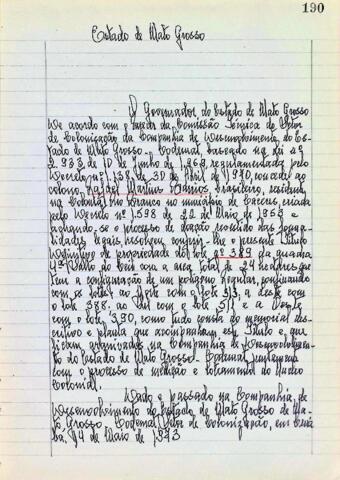 190
Estado de Mato Grosso
O Governador do Estado de Mato Grosso
De acordo com o parecer da Comissão Técnica do Setor
de Colonização da Companhia de Desenvolvimento do Es-
tado de Mato Grosso - Codemat, baseado na lei nº
2.933 de 10 de Junho de 1.969, regulamentada pelo
Decreto nº 1.138, de 30 de Abril de 1.970, concede ao
colono, Martins Barros, brasileiro, residente
na Colonia Rio Branco no municipio de Cáceres, criada
pelo Decreto nº 1.598 de 22 de Maio de 1953 e
achando-se o processo de doação revestido das forma-
lidades legais, resolvem conferir-lhe o presente Titulo
Definitivo de propriedade do lote nº 389 da quadra
4ª com a area total de 24 hectares que
tem a configuração de um poligono regular, confinando
com os lotes: ao Norte com o lote 313, a leste com
o lote 388, ao Sul com o lote e a Oeste
com o lote 390, como tudo consta do memorial des-
critivo e planta que acompanham esse Titulo e que
ficam arquivados na Companhia de Desenvolvimen-
to do Estado de Mato Grosso - Codemat, juntamente
com o processo de medição e loteamento do Nucleo
Colonial.
Dado e passado na Companhia de
Desenvolvimento do Estado de Mato Grosso de Ma-
to Grosso - Codemat, Setor de Colonização, em Cuia-
bá, 14 de Maio de 1.973